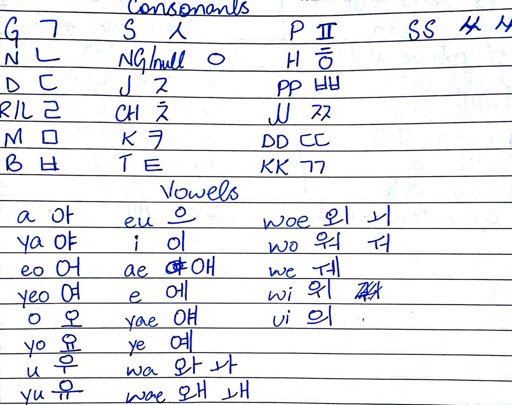 Consonants
G ㄱ S ㅅ P ㅍ SS ㅆ
N ㄴ NG/null ㅇ H ㅎ
D ㄷ J ㅈ PP ㅃ
R/L ㄹ CH ㅊ JJ ㅉ
M ㅁ K ㅋ DD ㄸ
B ㅂ T ㅌ KK ㄲ
Vowels
a 아 eu 으 woe 외 ㅚ
ya 야 i 이 wo 워 ㅝ
eo 어 ae 애 we ㅞ
yeo 여 e 에 wi 위
o 오 yae 얘 ui 의
yo 요 ye 예
u 우 wa 와 ㅘ
yu 유 wae 왜 ㅙ